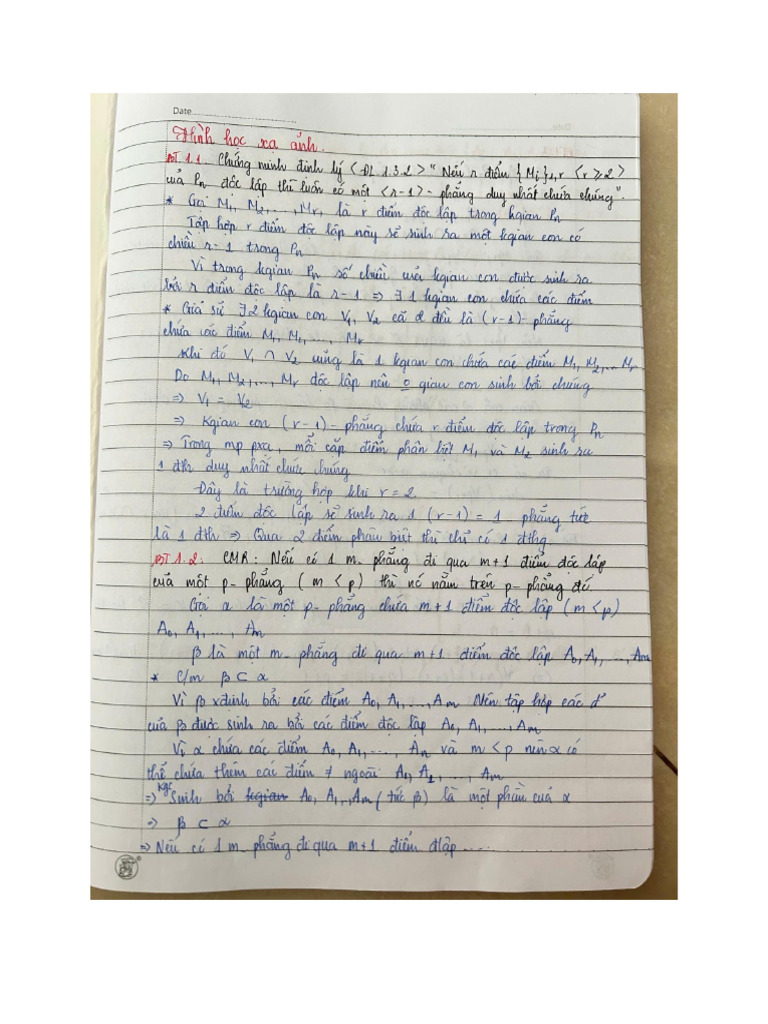 Date
Hình học xạ ảnh.
BT 1.1. Chứng minh định lý <ĐL 1.3.2> "Nếu r điểm {Mi}1,r <r ≥ 2>
của Pn độc lập thì luôn có một <r-1> - phẳng duy nhất chứa chúng".
* Gọi M1, M2, ..., Mr, là r điểm độc lập trong kgian Pn
Tập hợp r điểm độc lập này sẽ sinh ra một kgian con có
chiều r-1 trong Pn
Vì trong kgian Pn số chiều của kgian con được sinh ra
bởi r điểm độc lập là r-1 ⇒ ∃ 1 kgian con chứa các điểm
* Giả sử ∃ 2 kgian con V1, V2 cả 2 đều là (r-1)- phẳng
chứa các điểm M1, M2, ..., Mr
Khi đó V1 ∩ V2 cũng là 1 kgian con chứa các điểm M1, M2, ... Mr
Do M1, M2, ..., Mr độc lập nên gian con sinh bởi chúng
⇒ V1 = V2
⇒ Kgian con (r-1)- phẳng chứa r điểm độc lập trong Pn
⇒ Trong mp pxạ, mỗi cặp điểm phân biệt M1 và M2 sinh ra
1 đth duy nhất chứa chúng
Đây là trường hợp khi r = 2
2 điểm độc lập sẽ sinh ra 1 (r-1) = 1 - phẳng tức
là 1 đth ⇒ Qua 2 điểm phân biệt thì chỉ có 1 đthg
BT 1.2: CMR: Nếu có 1 m- phẳng đi qua m+1 điểm độc lập
của một p- phẳng (m < p) thì nó nằm trên p- phẳng đó
Gọi α là một p- phẳng chứa m+1 điểm độc lập (m < p)
A0, A1, ..., Am
β là một m- phẳng đi qua m+1 điểm độc lập A0, A1, ..., Am
* C/m β ⊂ α
Vì β xđịnh bởi các điểm A0, A1, ..., Am Nên tập hợp các đ'
của β được sinh ra bởi các điểm độc lập A0, A1, ..., Am
Vì α chứa các điểm A0, A1, ..., Am và m < p nên α có
thể chứa thêm các điểm ≠ ngoài A0, A1, ..., Am
⇒ Kgc Sinh bởi kgian A0, A1, .., Am (tức β) là một phần của α
⇒ β ⊂ α
⇒ Nếu có 1 m- phẳng đi qua m+1 điểm đlập .....